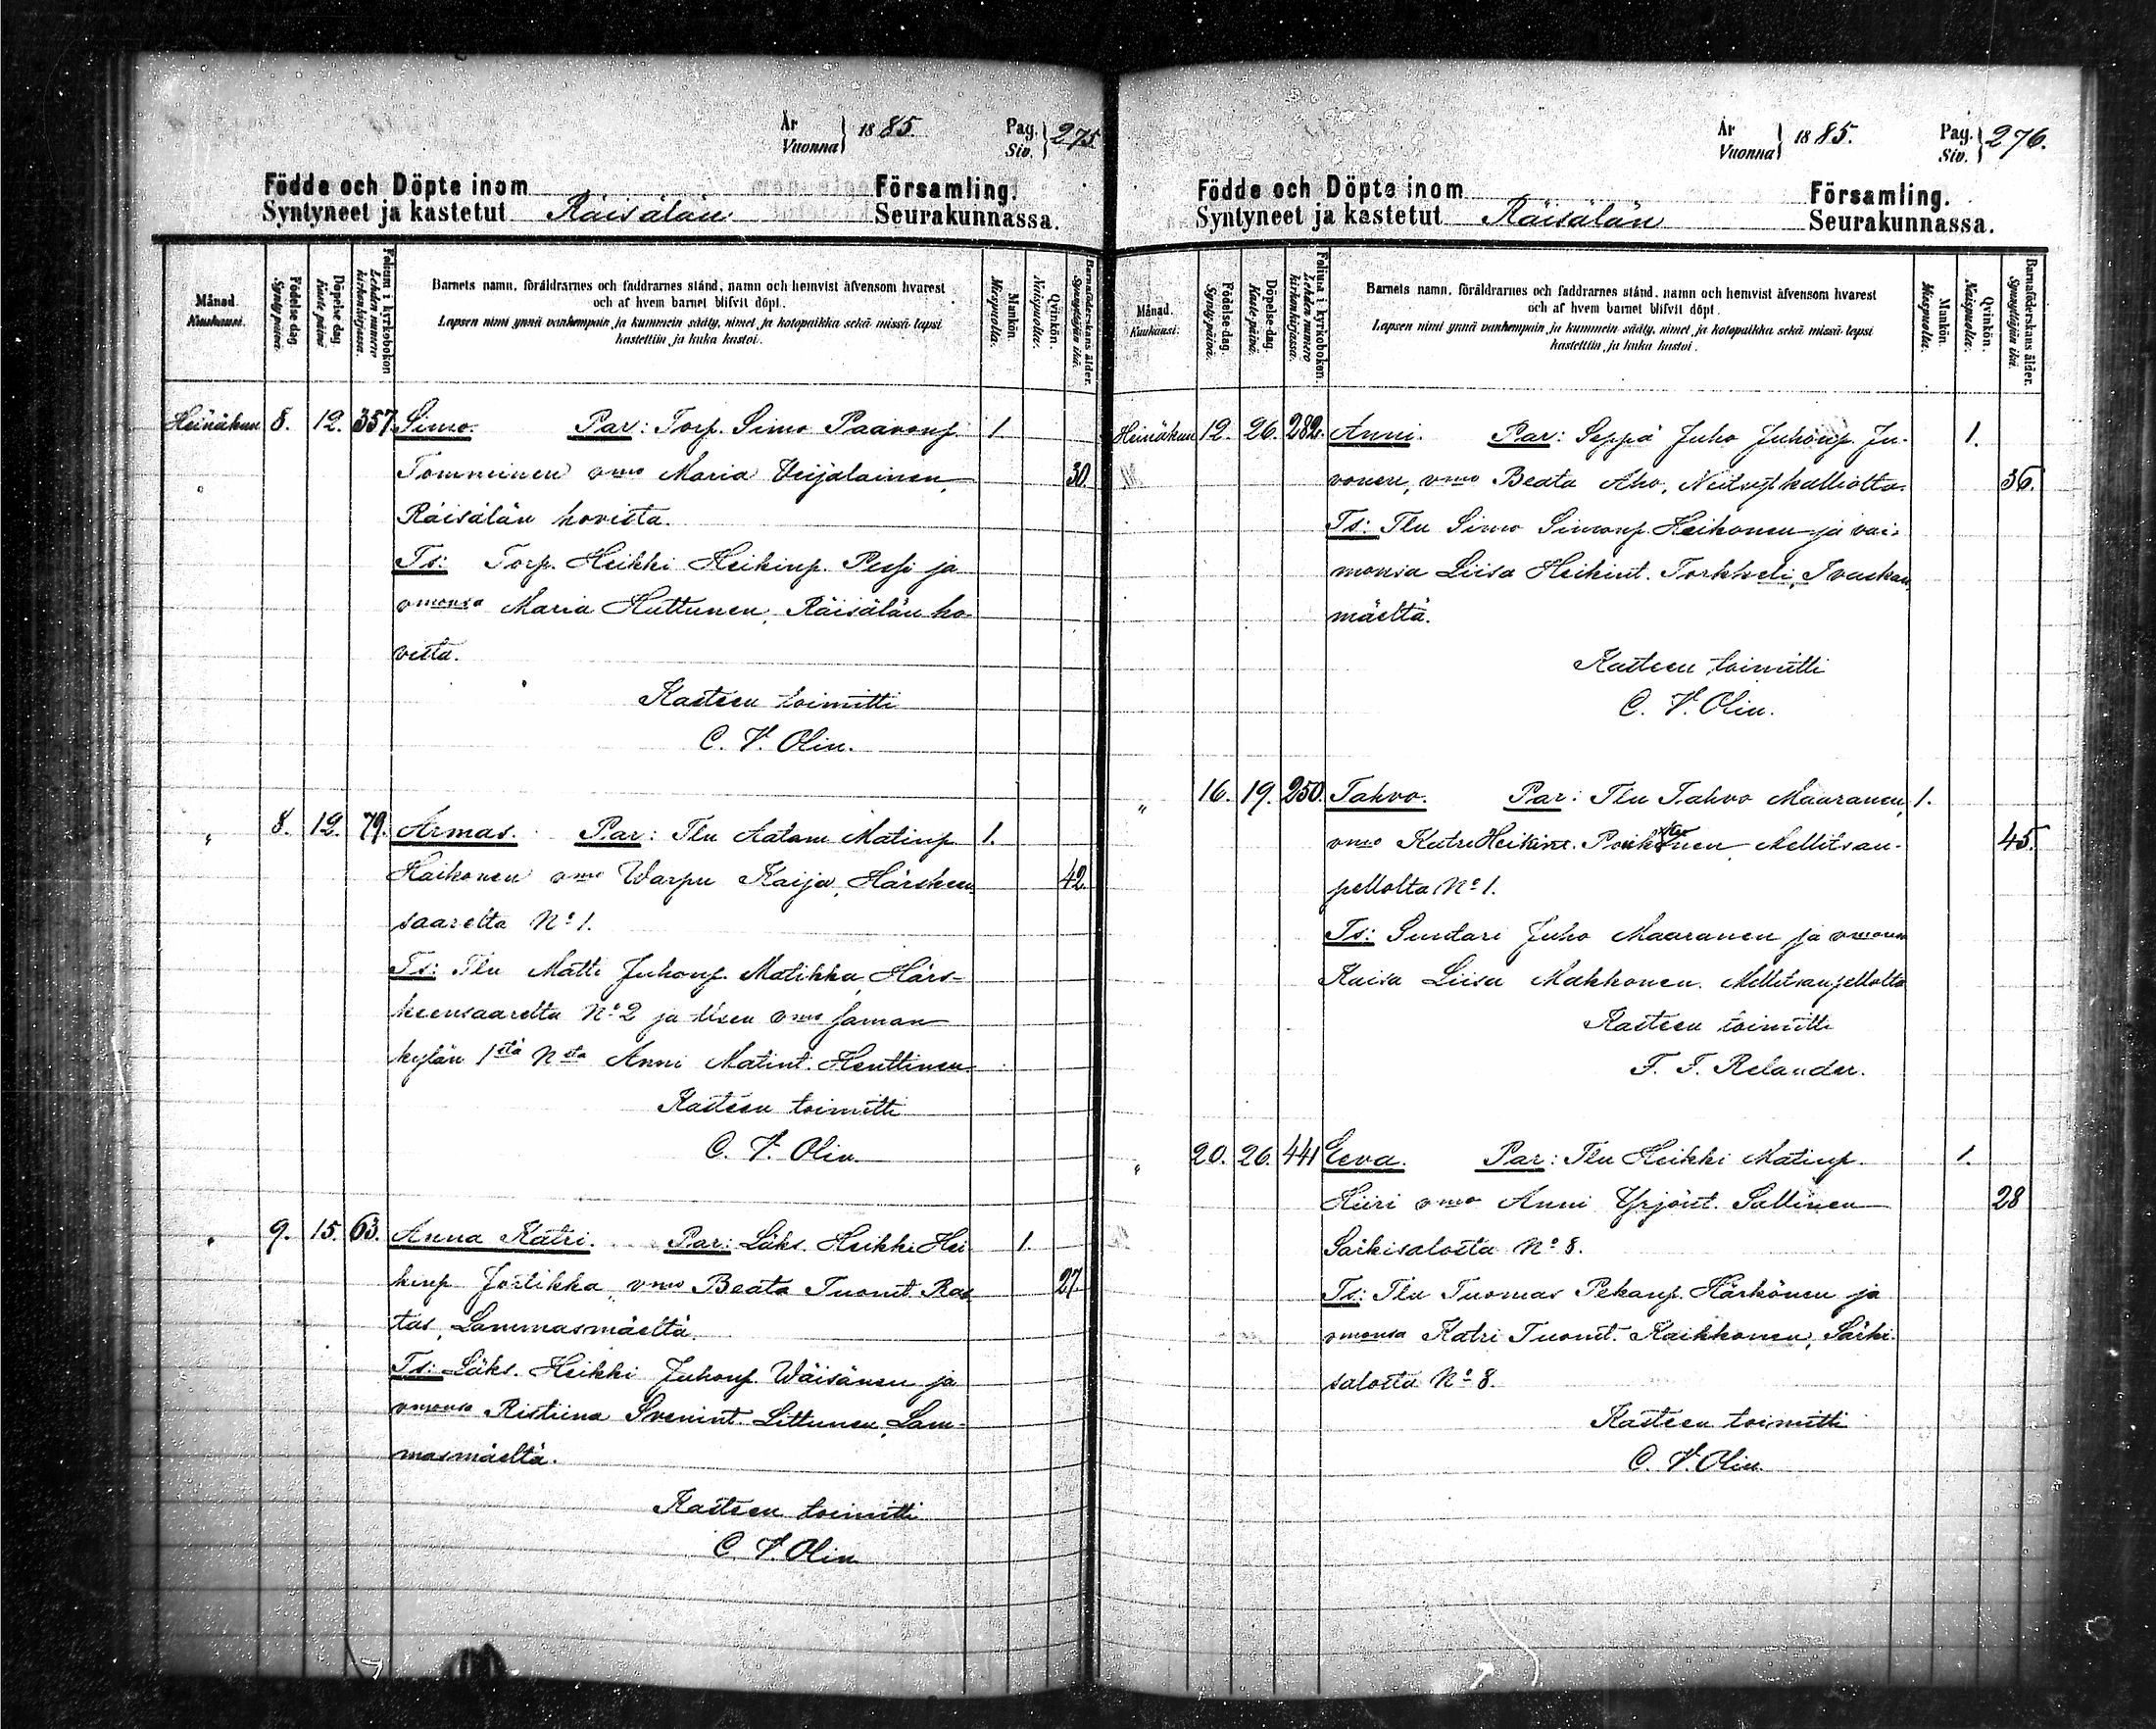 År
Vuonna } 1885.
Pag.
Siv. } 275
Födde och Döpte inom Församling.
Syntyneet ja kastetut Räisälän Seurakunnassa.
Månad. Kuukausi.
Födelse dag. Synty päivä.
Döpelse dag Kaste päivä
Folium i kyrkobokon Lehden numero kirkonkirjassa.
Barnets namn, föräldrarnes och faddrarnes stånd, namn och hemvist äfvensom hvarest
och af hvem barnet blifvit döpt.
Lapsen nimi ynnä vanhempain ja kummein sääty, nimet ja kotopaikka sekä missä lapsi
kastettiin ja kuka kastoi.
Mankön. Miespuolia.
Qvinkön. Naispuolia.
Barnaföderskans ålder. Synnyttäjän ikä.
Heinäkuu 8. 12. 357. Simo. Par: Torp. Simo Paavonp. 1.
Tomminen vmo Maria Veijalainen, 30.
Räisälän hovista.
Ts: Torp. Heikki Heikinp. Pessi ja
vmonsa Maria Huttunen, Räisälän ho-
vista.
Kasteen toimitti
C. V. Olin.
" 8. 12. 79. Armas. Par: Tln Aatam Matinp. 1.
Haikonen vmo Warpu Kaija, Härskeen- 42.
saarelta No 1.
Ts: Tln Matti Juhonp. Matikka, Härs-
keensaarelta No 2 ja tlsen vmo saman
kylän 1stä Nsta Anni Matint. Henttinen
Kasteen toimitti
C. V. Olin.
" 9. 15. 63. Anna Katri. Par: Läks. Heikki Hei- 1.
kinp. Jortikka, vmo Beata Tuomt. Ras- 27.
tas, Lammasmäeltä.
Ts: Läks. Heikki Juhonp. Wäisänen ja
vmonsa Ristiina Svenint. Littunen, Lam-
masmäeltä.
Kasteen toimitti
C. V. Olin
År
Vuonna } 1885.
Pag.
Siv. } 276.
Födde och Döpte inom Församling.
Syntyneet ja kastetut Räisälän Seurakunnassa.
Månad. Kuukausi.
Födelse-dag. Synty päivä.
Döpelse-dag. Kaste päivä.
Folium i kyrkobokon. Lehden numero kirkonkirjassa.
Barnets namn, föräldrarnes och faddrarnes stånd, namn och hemvist äfvensom hvarest
och af hvem barnet blifvit döpt.
Lapsen nimi ynnä vanhempain ja kummein sääty, nimet ja kotopaikka sekä missä lapsi
kastettiin ja kuka kastoi.
Mankön. Miespuolia.
Qvinkön. Naispuolia.
Barnaföderskans ålder. Synnyttäjän ikä.
Heinäkuu 12. 26. 282. Anni. Par: Seppä Juho Juhonp. Ju- 1.
vonen, vmo Beata Aho, Neitsytkalliolta. 36.
Ts: Tln Simo Simonp. Heikonen ja vai-
monsa Liisa Heikint. Torkkeli, Ivaskan-
mäeltä.
Kasteen toimitti
C. V. Olin.
" 16. 19. 250. Tahvo. Par: Tln Tahvo Maaranen, 1.
vmo Katri Heikint. Mellitsan- 45.
pellolta No 1.
Ts: Suutari Juho Maaranen ja vmonsa
Kaisa Liisa Makkonen. Mellitsanpellolta
Kasteen toimitti
F. F. Relander.
" 20. 26. 441 Eeva. Par: Tln Heikki Matinp. 1.
Hiiri vmo Anni Yrjönt. Sallinen 28
Särkisalosta No 8.
Ts: Tln Tuomas Pekanp. Härkönen ja
vmonsa Katri Tuomt. Kaikkonen, Särki-
salosta No 8.
Kasteen toimitti
C. V. Olin.